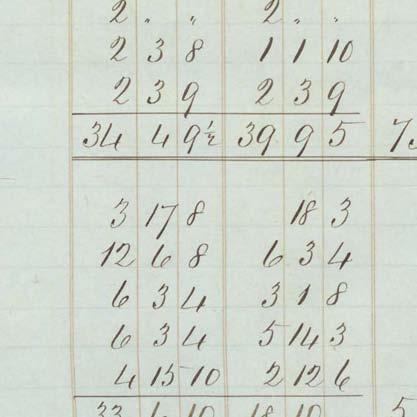 2 " " 2 " "
2 3 8 1 1 10
2 3 9 2 3 9
34 4 9½ 39 9 5
3 17 8 18 3
12 6 8 6 3 4
6 3 4 3 1 8
6 3 4 5 14 3
4 15 10 2 12 6
33 6 10 18 10